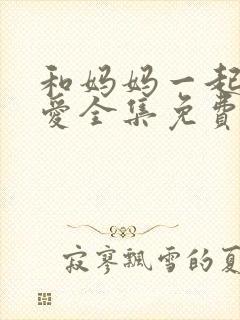 和妈妈一起
愛全集免費
寂寥飄雪的夏